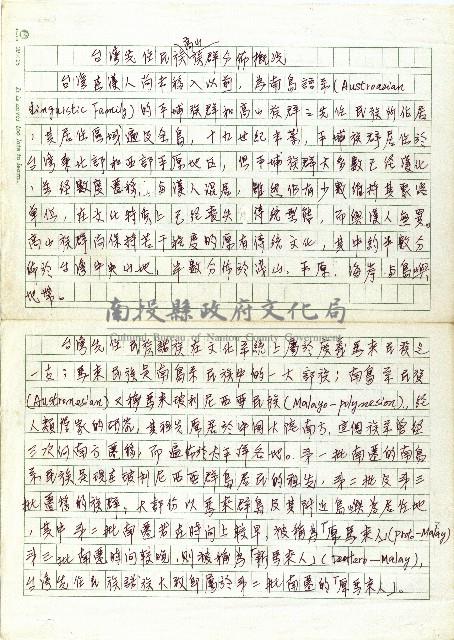 台灣先住民族高山族群分佈概況
台灣在漢人尚未移入以前，為南島語系(Austroasian
Linguistic Family)的平埔族群和高山族群之先住民族所住居
；其居住區域遍及全島，十九世紀末葉，平埔族群居住於
台灣東北部和西部平原地區，但平埔族群大多數已經漢化
，並經數度遷移，與漢人混居，雖然仍有少數維持其聚落
單位，在文化特質上已經喪失傳統型態，而與漢人無異。
高山族群尚保持若干程度的原有傳統文化，其中約半數分
佈於台灣中央山地，半數分佈於淺山、平原、海岸與島嶼
地帶。
南投縣政府文化局
Cultural Bureau of Nantou County Government
台灣先住民族諸族在文化系統上屬於廣義馬來民族之
一支；馬來民族是南島系民族中的一大部族；南島系民族
(Austronesian)又稱馬來玻利尼西亞民族(Malayo-polynesion)，經
人類學家的研究，其祖先原居於中國大陸南方，這個族羣曾經
三次向南方遷移，而遍佈於太平洋各地。第一批南遷的南島
系民族是現在玻利尼西亞群島居民的祖先，第二批及第三
批遷移的族群，大部份以馬來群島及其附近島嶼為居住地
，其中第二批南遷者在時間上較早，被稱為「原馬來人」(proto-Malay)
第三批南遷時間較晚，則被稱為「新馬來人」(
-Malay)，
台灣先住民族群族大致即屬於第二批南遷的「原馬來人」。